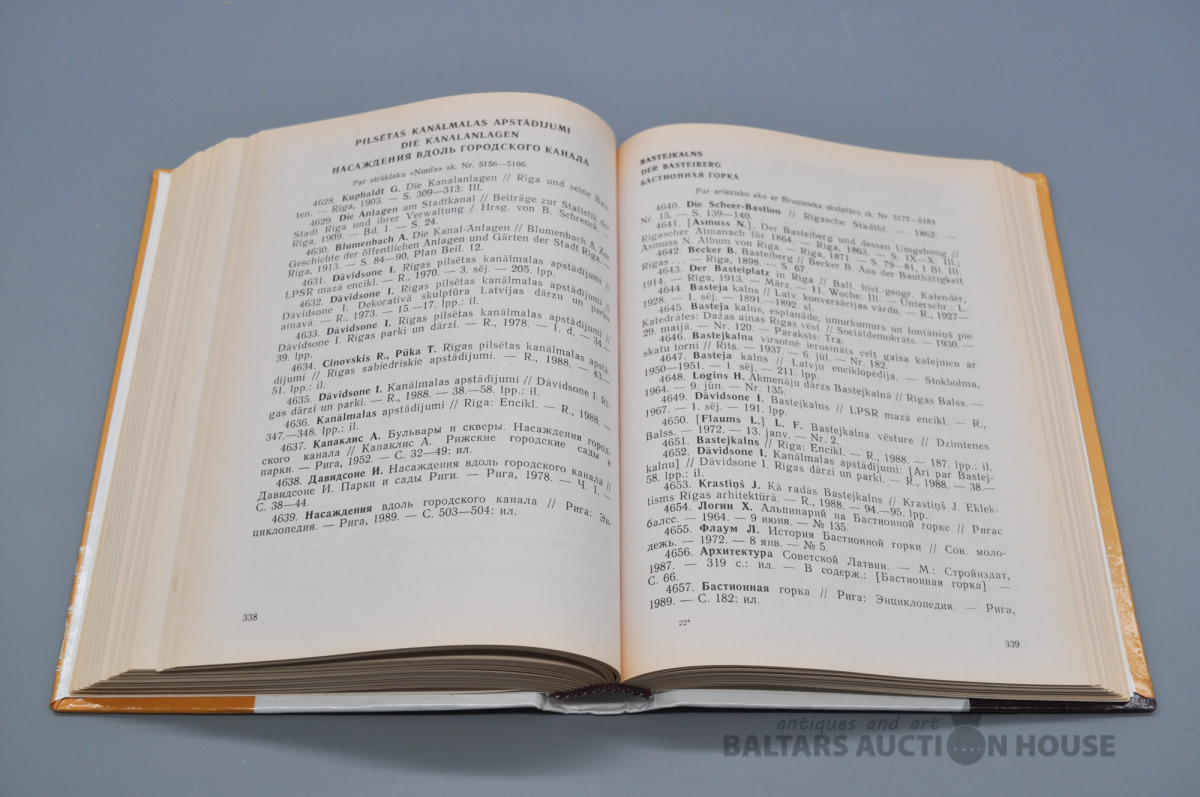 PILSĒTAS KANĀLMALAS APSTĀDIJUMI
DIE KANALANLAGEN
НАСАЖДЕНИЯ ВДОЛЬ ГОРОДСКОГО КАНАЛА
Par strūklaku «Nimfa» sk. Nr. 5156—5166.
4628. Kuphaldt G. Die Kanalanlagen // Riga und seine Bau-
ten. — Riga, 1903. — S. 309—313: Ill.
4629. Die Anlagen am Stadtkanal // Beiträge zur Statistik der
Stadt Riga und ihrer Verwaltung / Hrsg. von B. Schrenck. —
Riga, 1909. — Bd. 1. — S. 24.
4630. Blumenbach A. Die Kanal-Anlagen // Blumenbach A. Zur
Geschichte der öffentlichen Anlagen und Gärten der Stadt Riga. —
Riga, 1913. — S. 84—90, Plan Beil. 12.
4631. Dāvidsone I. Rīgas pilsētas kanālmalas apstādījumi //
LPSR mazā encikl. — R., 1970. — 3. sēj. — 205. lpp.
4632. Dāvidsone I. Rīgas pilsētas kanālmalas apstādījumi //
Dāvidsone I. Dekoratīvā skulptūra Latvijas dārzu un parku
ainavā. — R., 1973. — 15.—17. lpp.: il.
4633. Dāvidsone I. Rīgas pilsētas kanālmalas apstādījumi //
Dāvidsone I. Rīgas parki un dārzi. — R., 1978. — 1. d. — 34.—
39. lpp.
4634. Cinovskis R., Pūka T. Rīgas pilsētas kanālmalas apstā-
dījumi // Rīgas sabiedriskie apstādījumi. — R., 1988. — 43.—
51. lpp.: il.
4635. Dāvidsone I. Kanālmalas apstādījumi // Dāvidsone I. Rī-
gas dārzi un parki. — R., 1988. — 38.—58. lpp.: il.
4636. Kanālmalas apstādījumi // Rīga: Encikl. — R., 1988. —
347.—348. lpp.: il.
4637. Капаклис А. Бульвары и скверы. Насаждения город-
ского канала // Капаклис А. Рижские городские сады и
парки. — Рига, 1952. — С. 32—49: ил.
4638. Давидсоне И. Насаждения вдоль городского канала //
Давидсоне И. Парки и сады Риги. — Рига, 1978. — Ч. 1. —
С. 38—44.
4639. Насаждения вдоль городского канала // Рига: Эн-
циклопедия. — Рига, 1989. — С. 503—504: ил.
338
BASTEJKALNS
DER BASTEIBERG
БАСТИОННАЯ ГОРКА
Par artēzisko aku ar Bruņinieka skulptūru sk. Nr. 5177—5183.
4640. Die Scheer-Bastion // Rigasche Stadtbl. — 1862. —
Nr. 15. — S. 139—140.
4641. [Asmuss N.]. Der Basteiberg und dessen Umgebung //
Rigascher Almanach für 1864. — Riga, 1863. — S. IX—X. Ill.;
Asmuss N. Album von Riga. — Riga, 1871. — S. 79—81, 1 Bl. Ill.
4642. Becker B. Basteiberg // Becker B. Aus der Bauthätigkeit
Rigas... — Riga, 1898. — S. 67.
4643. Der Basteiplatz in Riga // Balt. hist.-geogr. Kalender,
1914. — Riga, 1913. — März. — 11. Woche: Ill. — Unterschr.: L.
4644. Basteja kalns // Latv. konversācijas vārdn. — R., 1927—
1928. — 1. sēj. — 1891.—1892. sl.
4645. Basteja kalns, esplanāde, umurkumurs un fontāniņš pie
Katedrāles: Dažas ainas Rīgas vēst. // Sociāldemokrāts. — 1930. —
29. maijā. — Nr. 120. — Paraksts: Tra.
4646. Bastejkalna virsotnē ierosināts celt gaisa kafejnīcu ar
skatu torni // Rīts. — 1937. — 6. jūl. — Nr. 182.
4647. Basteja kalns // Latvju enciklopēdija. — Stokholma,
1950—1951. — 1. sēj. — 211. lpp.
4648. Logins H. Akmeņāju dārzs Bastejkalnā // Rīgas Balss. —
1964. — 9. jūn. — Nr. 135.
4649. Dāvidsone I. Bastejkalns // LPSR mazā encikl. — R.,
1967. — 1. sēj. — 191. lpp.
4650. [Flaums L.] L. F. Bastejkalna vēsture // Dzimtenes
Balss. — 1972. — 13. janv. — Nr. 2.
4651. Bastejkalns // Rīga: Encikl. — R., 1988. — 187. lpp.: il.
4652. Dāvidsone I. Kanālmalas apstādījumi: [Arī par Bastej-
kalnu] // Dāvidsone I. Rīgas dārzi un parki. — R., 1988. — 38.—
58. lpp.: il.
4653. Krastiņš J. Kā radās Bastejkalns // Krastiņš J. Eklek-
tisms Rīgas arhitektūrā. — R., 1988. — 94.—95. lpp.
4654. Логин Х. Альпинарий на Бастионной горке // Ригас
балсс. — 1964. — 9 июня. — № 135.
4655. Флаум Л. История Бастионной горки // Сов. моло-
дежь. — 1972. — 8 янв. — № 5.
4656. Архитектура Советской Латвии. — М.: Стройиздат,
1987. — 319 с.: ил. — В содерж.: [Бастионная горка]. —
С. 66.
4657. Бастионная горка // Рига: Энциклопедия. — Рига,
1989. — С. 182: ил.
22*
339
antiques and art
BALTARS AUCTION HOUSE